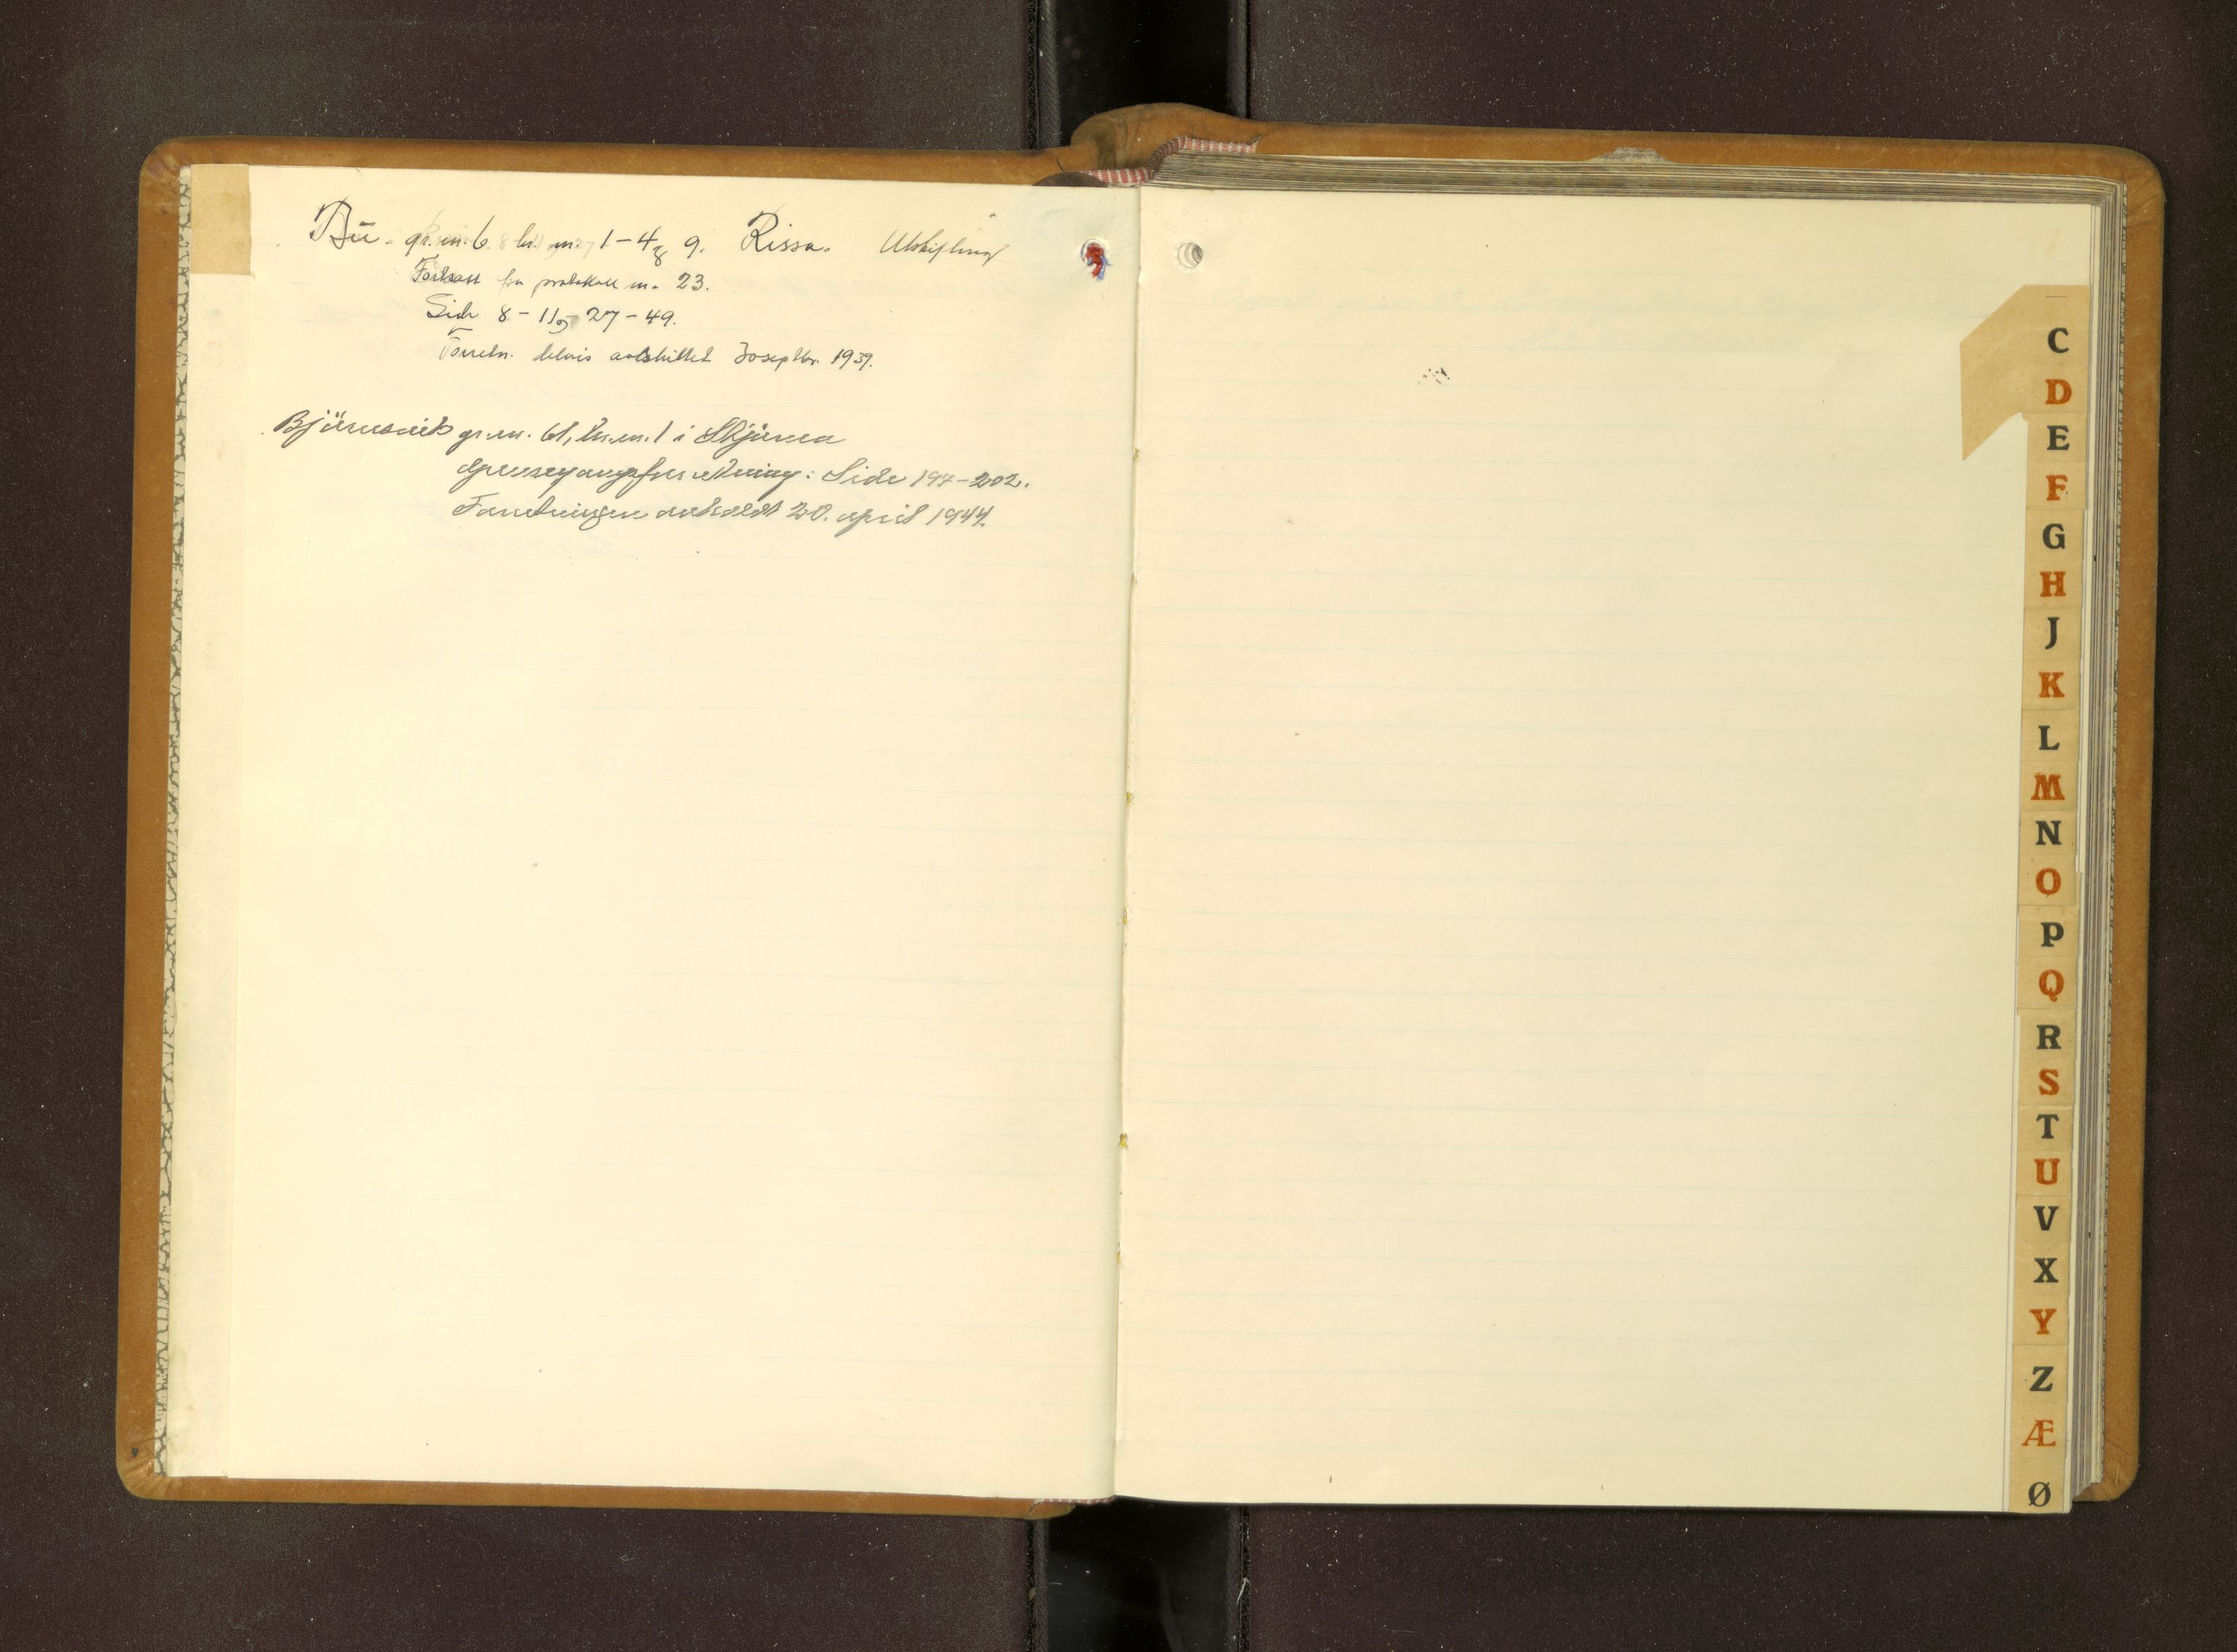 Bü. gr. nr. 6. br. nr. 1-4 & 9. Rissa. Utskiftning
Fortsatt fra protokoll nr. 23.
Side 8-11, 27-49.
Forretn. delvis avsluttet 30 septbr. 1939.
Björnevik gr. nr. 61, br. nr. 1 i Stjörna
Grensegangsforretning: Side 197-202.
Forretningen avsluttet 20. april 1944.
C
D
E
F
G
H
J
K
L
M
N
O
P
Q
R
S
T
U
V
X
Y
Z
Æ
Ø